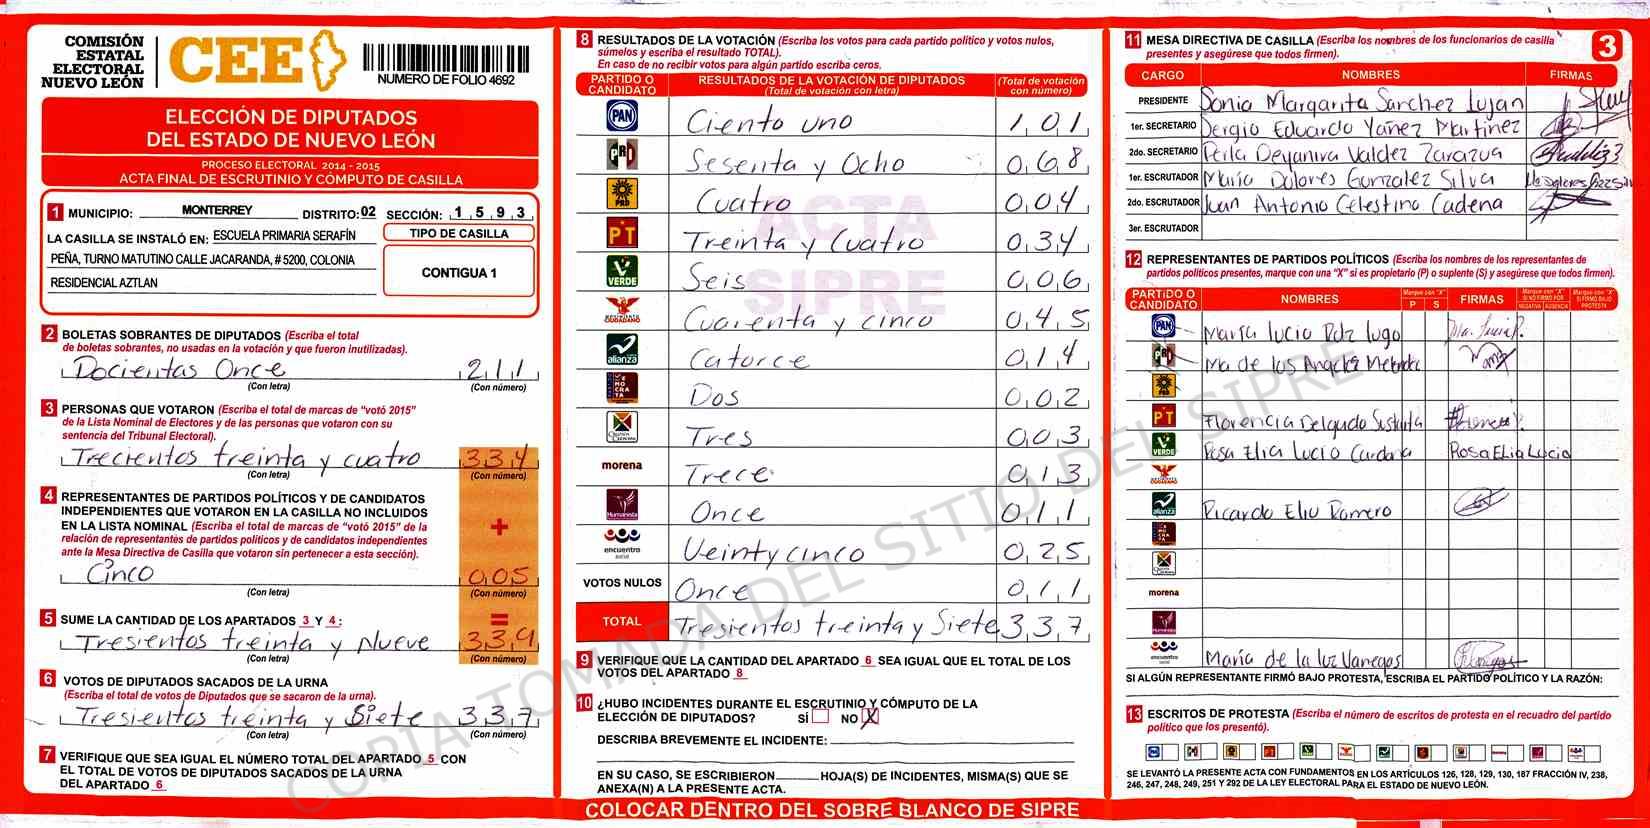 COMISIÓN
ESTATAL
ELECTORAL
NUEVO LEÓN
CEE
NUMERO DE FOLIO 4692
ELECCIÓN DE DIPUTADOS
DEL ESTADO DE NUEVO LEÓN
PROCESO ELECTORAL 2014 - 2015
ACTA FINAL DE ESCRUTINIO Y CÓMPUTO DE CASILLA
1 MUNICIPIO: MONTERREY DISTRITO:02 SECCIÓN: 1593
LA CASILLA SE INSTALÓ EN: ESCUELA PRIMARIA SERAFÍN
PEÑA, TURNO MATUTINO CALLE JACARANDA, # 5200, COLONIA
RESIDENCIAL AZTLAN
TIPO DE CASILLA
CONTIGUA 1
2 BOLETAS SOBRANTES DE DIPUTADOS (Escriba el total
de boletas sobrantes, no usadas en la votación y que fueron inutilizadas).
Docientas Once 211
(Con letra) (Con número)
3 PERSONAS QUE VOTARON (Escriba el total de marcas de "votó 2015"
de la Lista Nominal de Electores y de las personas que votaron con su
sentencia del Tribunal Electoral).
Trecientos treinta y cuatro 334
(Con letra) (Con número)
4 REPRESENTANTES DE PARTIDOS POLÍTICOS Y DE CANDIDATOS
INDEPENDIENTES QUE VOTARON EN LA CASILLA NO INCLUIDOS
EN LA LISTA NOMINAL (Escriba el total de marcas de "votó 2015" de la
relación de representantes de partidos políticos y de candidatos independientes
ante la Mesa Directiva de Casilla que votaron sin pertenecer a esta sección).
+
Cinco 005
(Con letra) (Con número)
=
5 SUME LA CANTIDAD DE LOS APARTADOS 3 Y 4:
Tresientos treinta y Nueve 339
(Con letra) (Con número)
6 VOTOS DE DIPUTADOS SACADOS DE LA URNA
(Escriba el total de votos de Diputados que se sacaron de la urna).
Tresientos treinta y Siete 337
(Con letra) (Con número)
7 VERIFIQUE QUE SEA IGUAL EL NÚMERO TOTAL DEL APARTADO 5 CON
EL TOTAL DE VOTOS DE DIPUTADOS SACADOS DE LA URNA
DEL APARTADO 6
8 RESULTADOS DE LA VOTACIÓN (Escriba los votos para cada partido político y votos nulos,
súmelos y escriba el resultado TOTAL).
En caso de no recibir votos para algún partido escriba ceros.
PARTIDO O CANDIDATO RESULTADOS DE LA VOTACIÓN DE DIPUTADOS (Total de votación con letra) (Total de votación con número)
PAN Ciento uno 101
PRI Sesenta y Ocho 068
PRD Cuatro 004
PT Treinta y Cuatro 034
VERDE Seis 006
MOVIMIENTO CIUDADANO Cuarenta y cinco 045
alianza Catorce 014
DEMOCRATA Dos 002
Tres 003
morena Trece 013
Humanista Once 011
encuentro social Veinty cinco 025
VOTOS NULOS Once 011
TOTAL Tresientos treinta y Siete 337
ACTA
SIPRE
9 VERIFIQUE QUE LA CANTIDAD DEL APARTADO 6 SEA IGUAL QUE EL TOTAL DE LOS
VOTOS DEL APARTADO 8
10 ¿HUBO INCIDENTES DURANTE EL ESCRUTINIO Y CÓMPUTO DE LA
ELECCIÓN DE DIPUTADOS? SÍ NO X
DESCRIBA BREVEMENTE EL INCIDENTE:
EN SU CASO, SE ESCRIBIERON HOJA(S) DE INCIDENTES, MISMA(S) QUE SE
ANEXA(N) A LA PRESENTE ACTA.
COLOCAR DENTRO DEL SOBRE BLANCO DE SIPRE
11 MESA DIRECTIVA DE CASILLA (Escriba los nombres de los funcionarios de casilla
presentes y asegúrese que todos firmen).
3
CARGO NOMBRES FIRMAS
PRESIDENTE Sonia Margarita Sanchez Lujan
1er. SECRETARIO Sergio Eduardo Yañez Martinez
2do. SECRETARIO Perla Deyanira Valdez Zarazua
1er. ESCRUTADOR Maria Dolores Gonzalez Silva
2do. ESCRUTADOR Juan Antonio Celestino Cadena
3er. ESCRUTADOR
12 REPRESENTANTES DE PARTIDOS POLÍTICOS (Escriba los nombres de los representantes de
partidos políticos presentes, marque con una "X" si es propietario (P) o suplente (S) y asegúrese que todos firmen).
PARTIDO O CANDIDATO NOMBRES Marque con "X" P S FIRMAS Marque con "X" SI NO FIRMÓ POR NEGATIVA AUSENCIA Marque con "X" SI FIRMÓ BAJO PROTESTA
PAN María Lucia
PRI Ma de los Angeles
PRD
PT Florencia Delgado
VERDE Rosa Elia Lucio Cardona Rosa Elia Lucio
alianza Ricardo Eliu Romero
morena
Humanista
encuentro social María de la luz Vanegas
SI ALGÚN REPRESENTANTE FIRMÓ BAJO PROTESTA, ESCRIBA EL PARTIDO POLÍTICO Y LA RAZÓN:
13 ESCRITOS DE PROTESTA (Escriba el número de escritos de protesta en el recuadro del partido
político que los presentó).
SE LEVANTÓ LA PRESENTE ACTA CON FUNDAMENTOS EN LOS ARTÍCULOS 126, 128, 129, 130, 187 FRACCIÓN IV, 238,
246, 247, 248, 249, 251 Y 292 DE LA LEY ELECTORAL PARA EL ESTADO DE NUEVO LEÓN.
COPIA TOMADA DEL SITIO DEL SIPRE